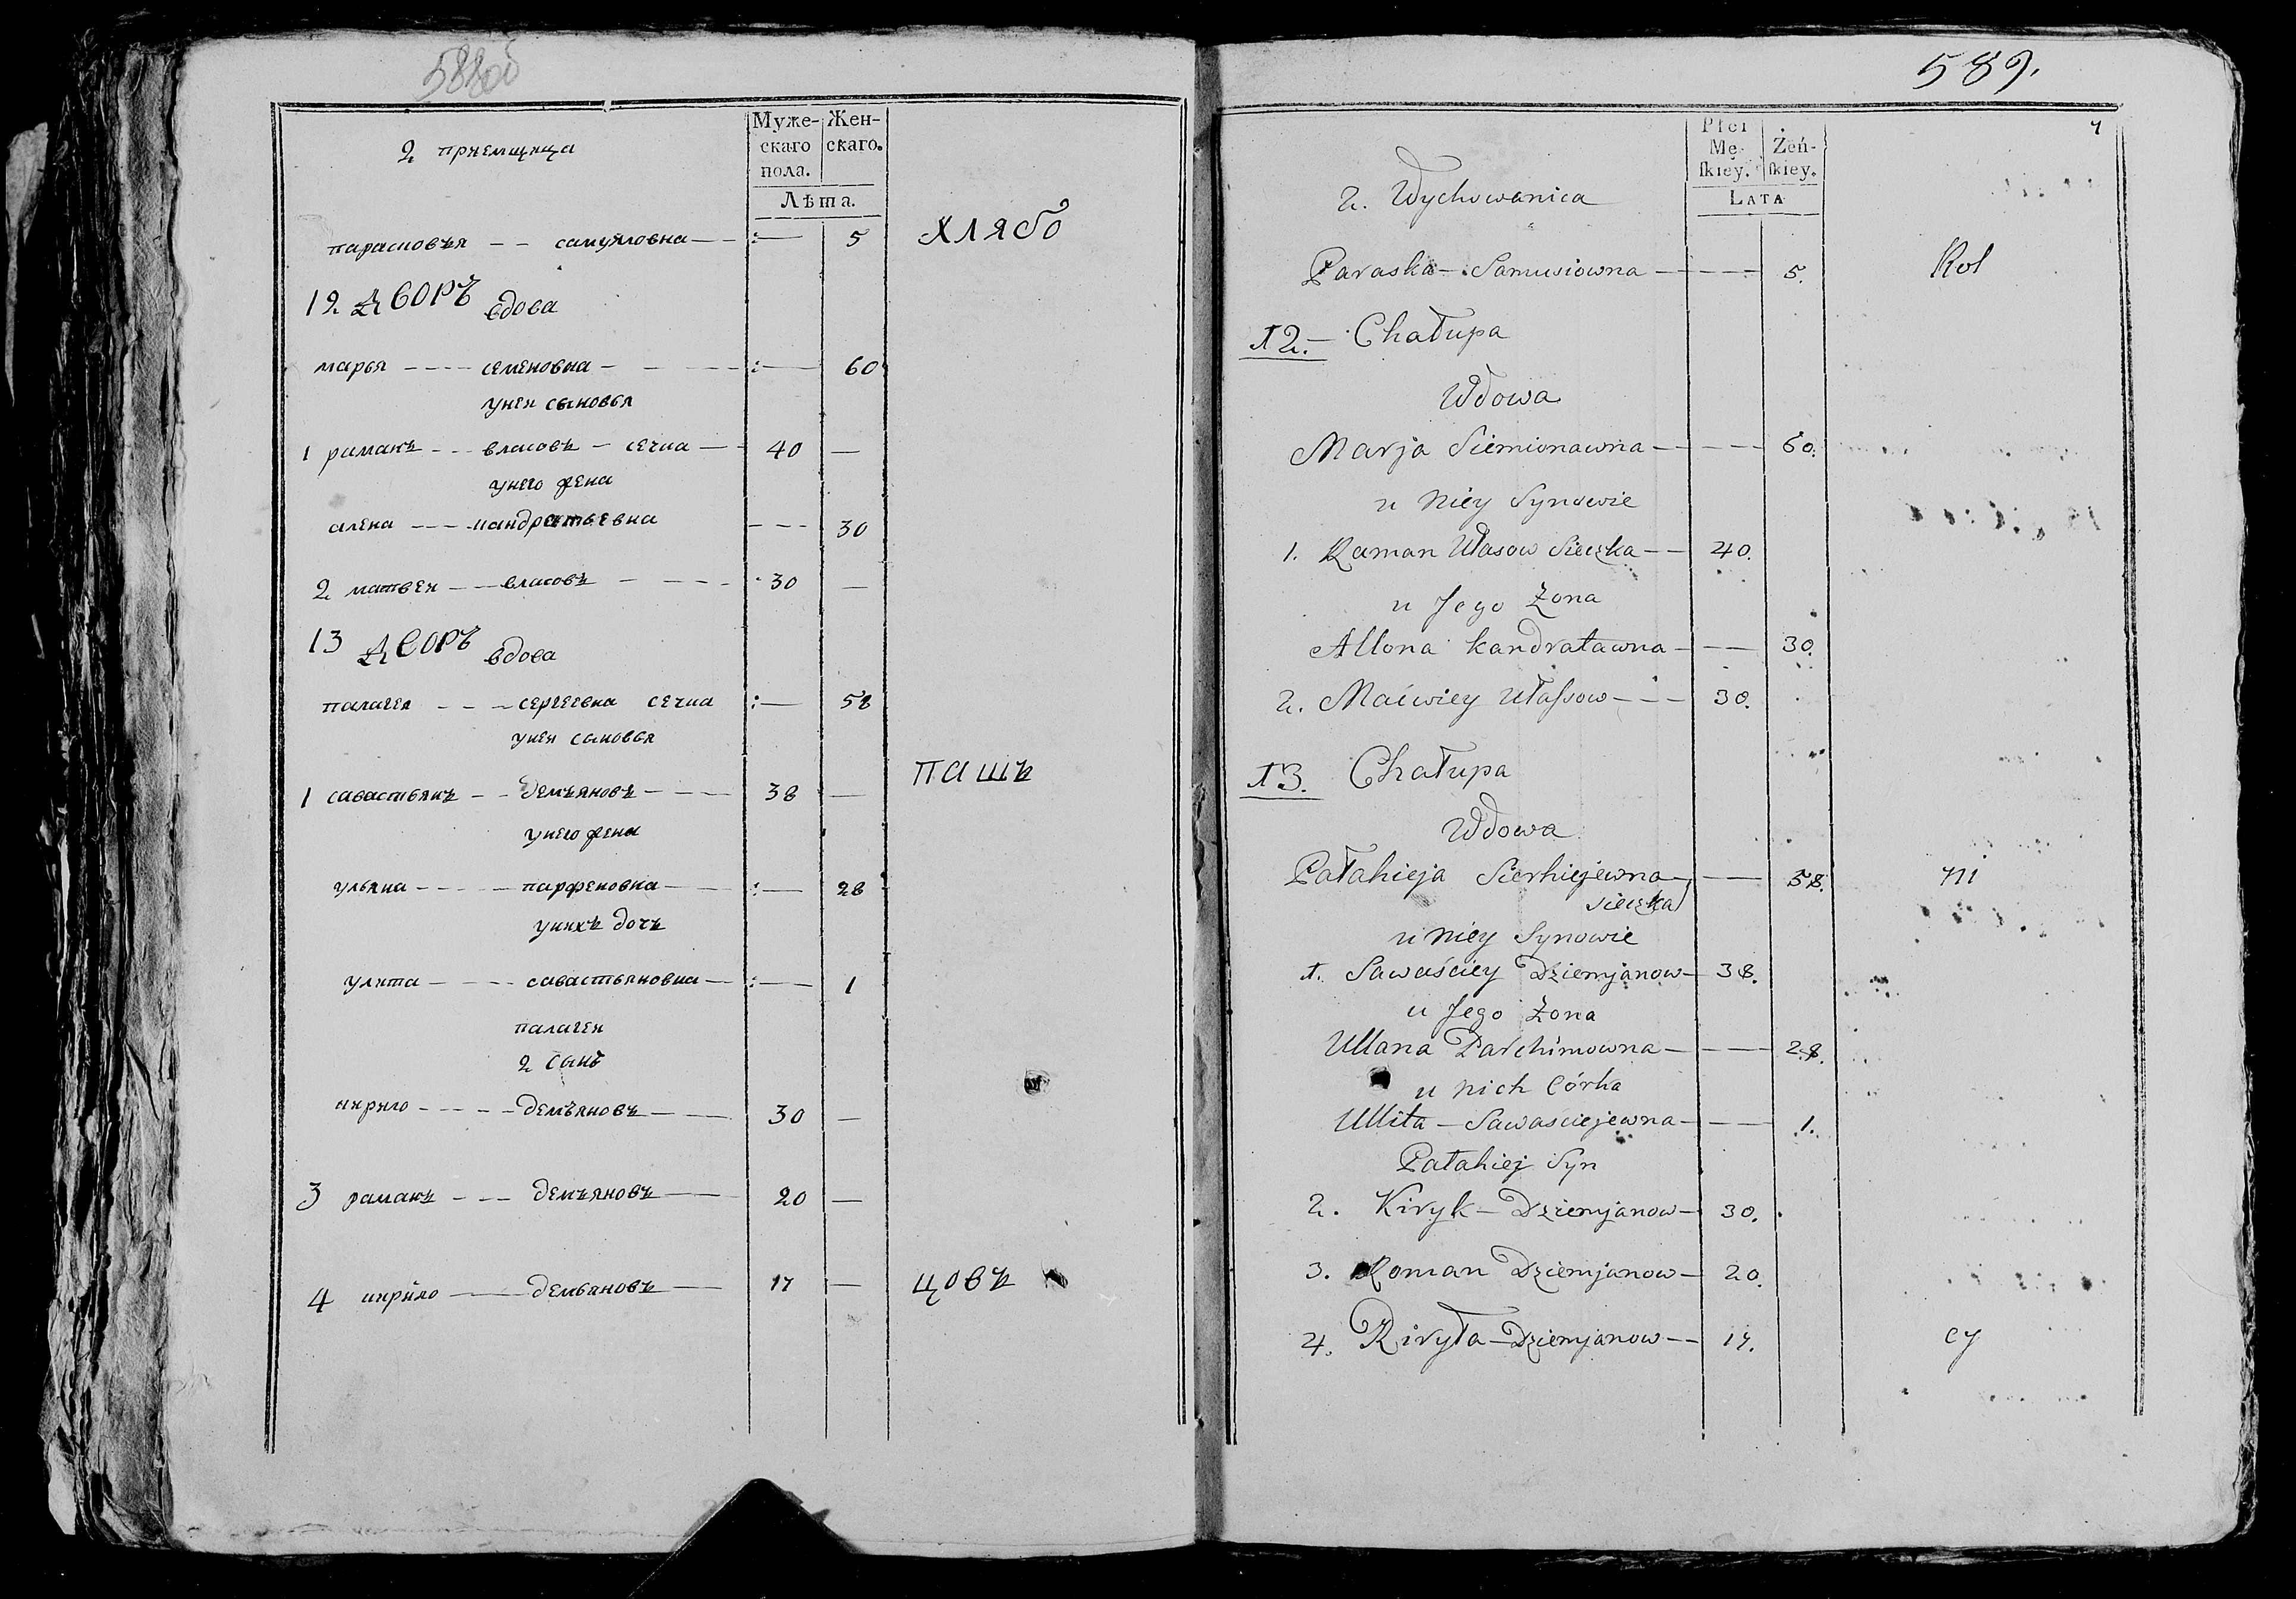 588об
2 приемщица
Муже-
скаго
пола.
Жен-
скаго.
Лѣта.
парасковья - - самуиловна - - 5 хлябо
12 дворъ вдова
марья - - - - семеновна - - - 60
уней сыновья
1 раманъ - - - власовъ - сечка - - 40 —
унего жена
алена - - - кандратьевна - - - 30
2 матвей - - - власовъ - - - - 30 —
13 дворъ вдова
палагея - - - сергеевна сечка 58
уней сыновья
пашъ
1 савастьянъ - - демъяновъ - - - - 38 —
унего жена
ульяна - - - - - парфеновна - - 28
унихъ дочъ
улита - - - - савастьяновна - - 1
палагеи
2 сынъ
кирило - - - - - демъяновъ - - 30 —
3 раманъ - - - демъяновъ - - 20 —
4 кирило - - демьяновъ - - 17 — цовъ
589.
7
Płci
Mę-
skiey.
Żeń-
skiey.
LATA
2. Wychowanica
Paraska - Samusiowna - - - - 5. Rol
12. - Chałupa
Wdowa
Marja Siemionawna - - - - 60.
u Niey Synowie
1. Raman Ułasow Sieczka - - 40.
u Jego Żona
Allona kandratawna - - - 30.
2. Maćwiey Ułassow - - - 30.
13. Chałupa
Wdowa
Pałahieja Sierhiejewna - - - 58. ni
Sieczka
u Niey Synowie
1. Sawaściey Dziemjanow - 38.
u Jego Żona
Ullana Parchimowna - - - 28.
u Nich Córka
Ullita - Sawaściejewna - - - 1.
Pałahiej Syn
2. Kiryk - Dziemjanow - 30.
3. Roman Dziemjanow - 20.
4. Kiryła - Dziemjanow - - 17. cy